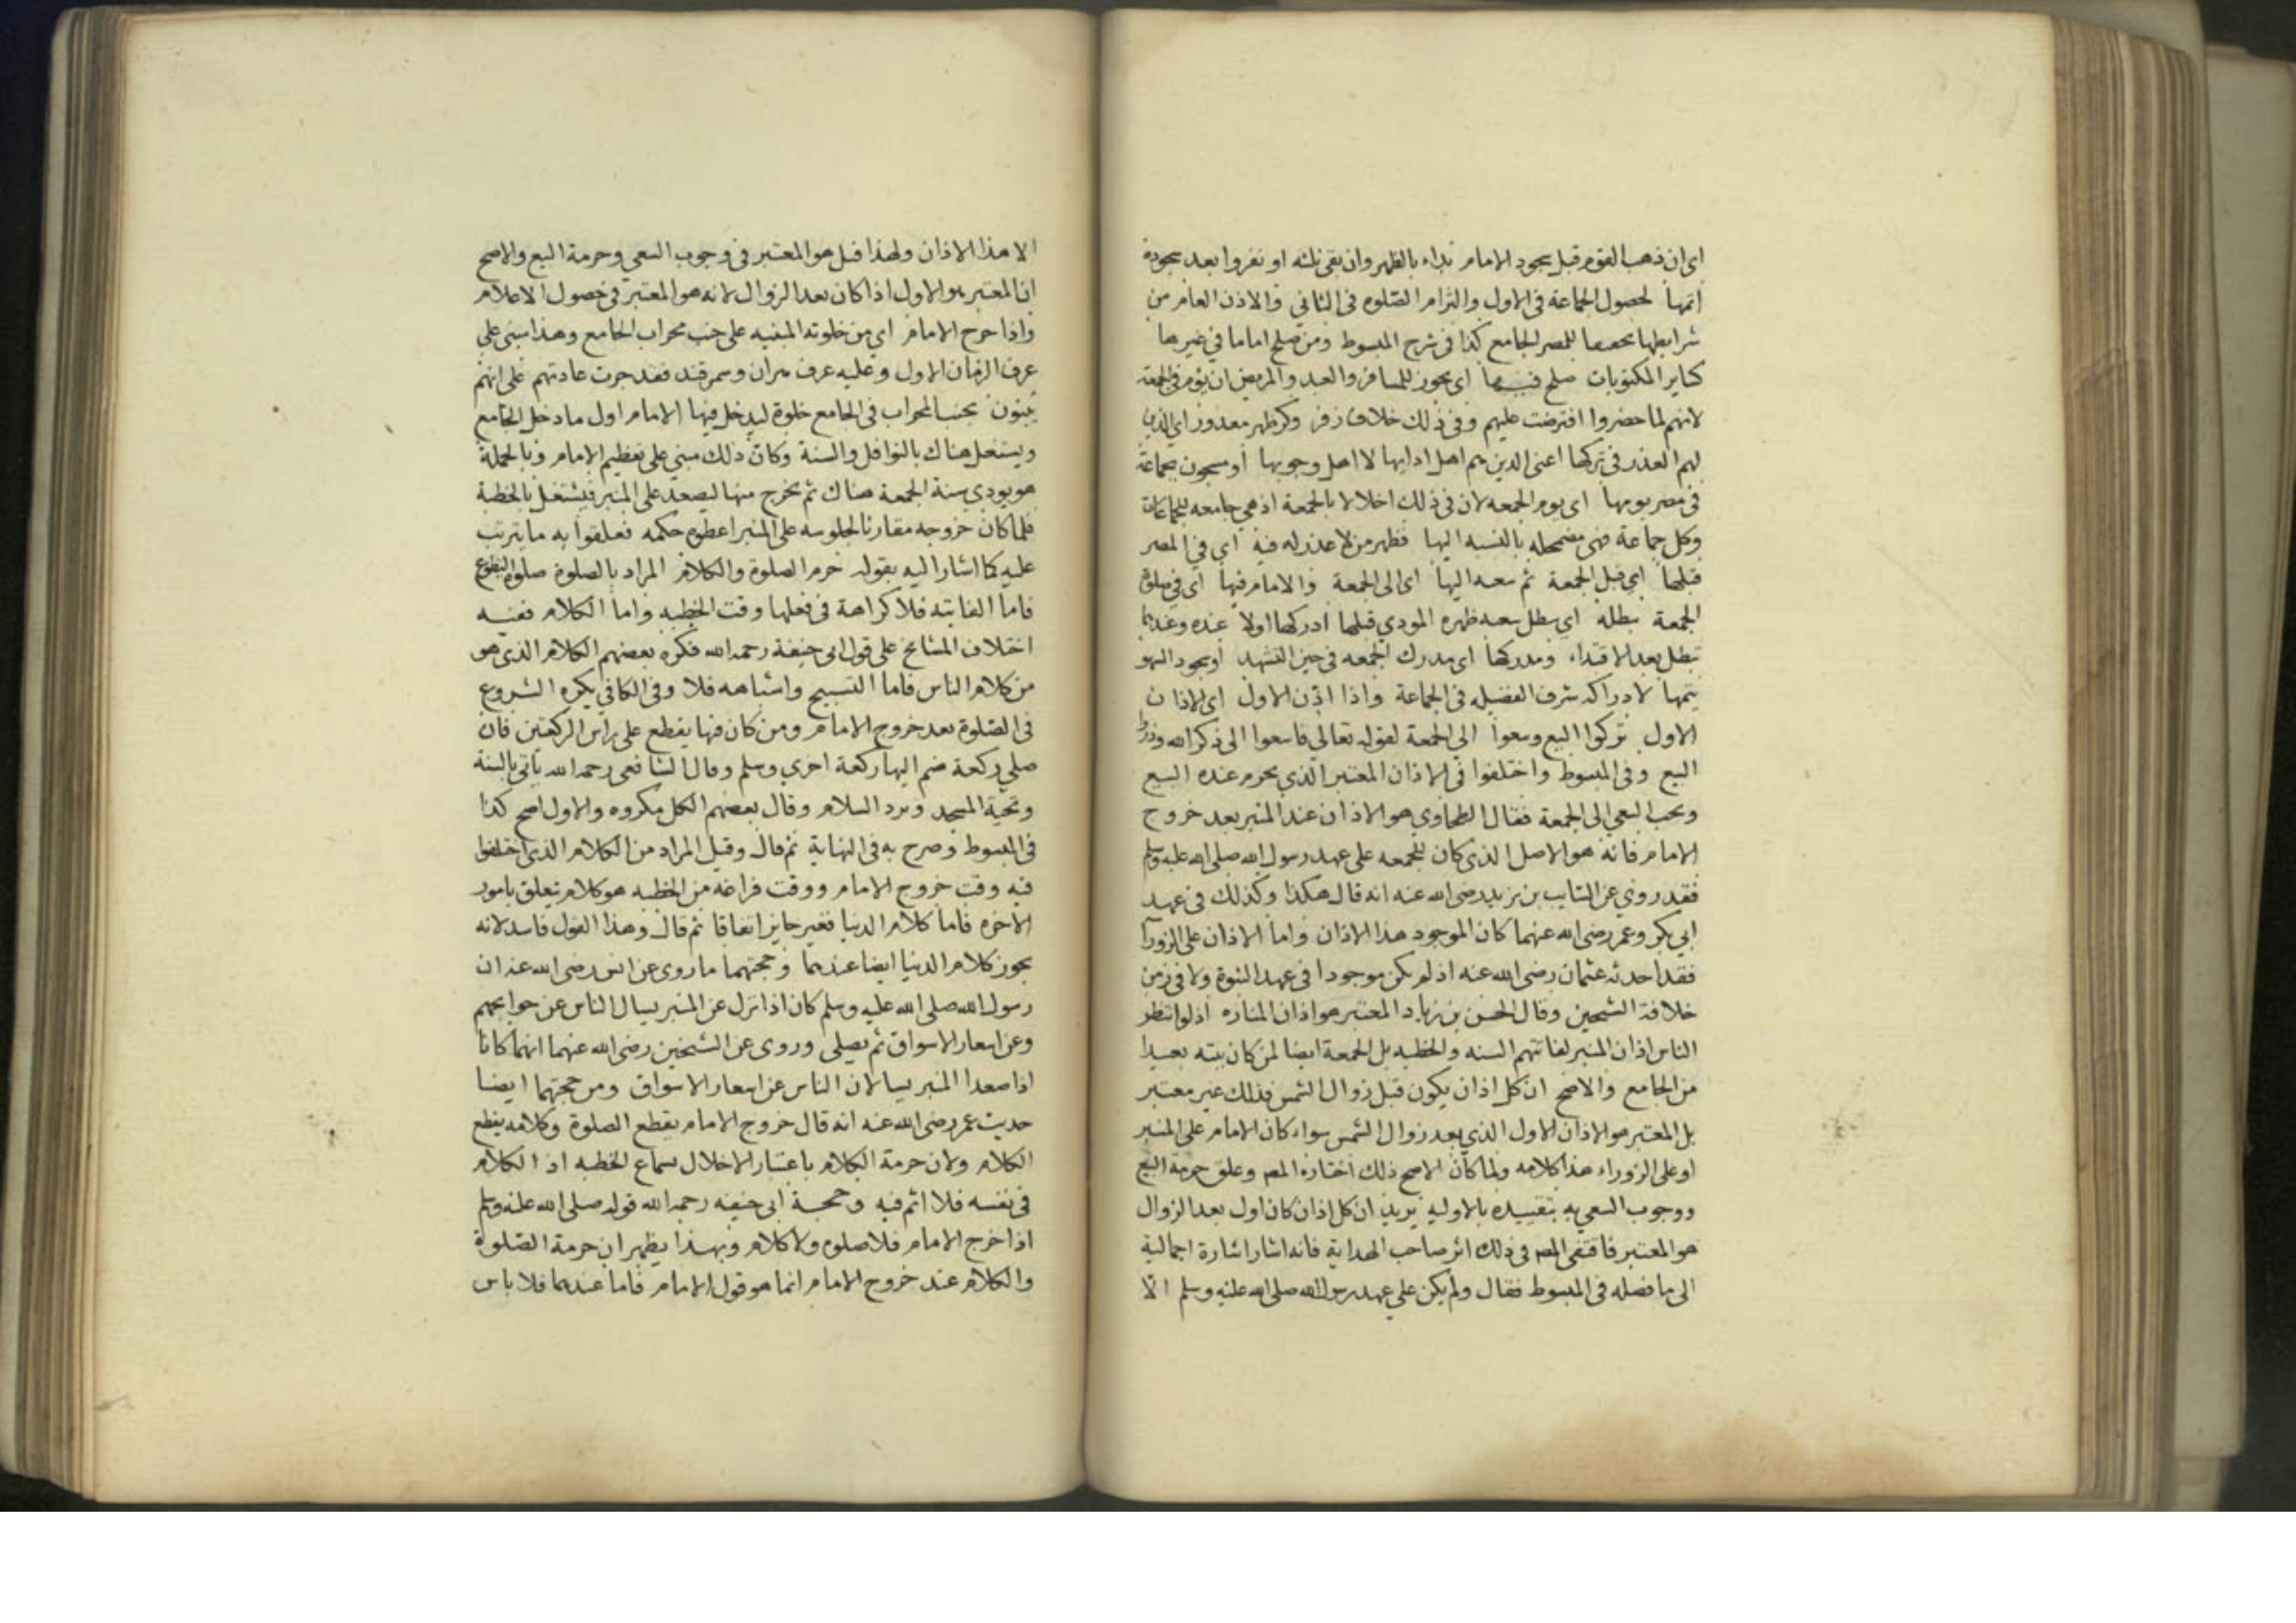 اى ان ذهب القوم قبل سجود الامام بداء بالظهر وان بقى ثلثه او نفروا بعد سجوده
اتمها لحصول الجماعة فى الاول والتزام الصلوه فى الثانى والاذن العام من
شرايطها للمصر الجامع كذا فى شرح المبسوط ومن صلح اماما فى غيرها
كساير المكتوبات صلح فيها اى يجوز للمسافر والعبد والمريض ان يؤم فى الجمعة
لانهم لما حضروا افترضت عليهم وفى ذلك خلاف زفر وكره ظهر معدور اى الذين
لهم العذر فى تركها اعنى الذين هم اهل ادايها لا اهل وجوبها او مسجون بجماعة
فى مصر يومها اى يوم الجمعه لان فى ذلك اخلالا بالجمعة اذ هى جامعه للجماعات
وكل جماعة فهى مضمحله بالنسبه اليها فظهر من لا عذر له فيه اى فى المصر
قبلها اى قبل الجمعة ثم سعيه اليها اى الى الجمعة والامام فيها اى فى صلوة
الجمعة يبطله اى يبطل سعيه ظهره المودى قبلها ادركها اولا عنده وعندهما
تبطل بعد الاقتداء ومدركها اى مدرك الجمعه فى حين التشهد او سجود السهو
يتمها لادراكه شرف الفضيله فى الجماعة واذا اذن الاول اى الاذان
الاول تركوا البيع وسعوا الى الجمعة لقوله تعالى فاسعوا الى ذكر الله وذروا
البيع وفى المبسوط واختلفوا فى الاذان المعتبر الذى يحرم عنده البيع
ويجب السعى الى الجمعة فقال الطحاوى هو الاذان عند المنبر بعد خروج
الامام فانه هو الاصل الذى كان للجمعه على عهد رسول الله صلى الله عليه وسلم
فقد روى عن السايب بن يزيد رضى الله عنه انه قال هكذا وكذلك فى عهد
ابى بكر وعمر رضى الله عنهما كان الموجود هذا الاذان واما الاذان على الزوراء
فقد احدثه عثمان رضى الله عنه اذ لم يكن موجودا فى عهد النبوة ولا فى زمن
خلافة الشيخين وقال الحسن بن زياد المعتبر هو اذان المناره اذ لو انتظر
الناس اذان المنبر لفاتتهم السنه والخطبه بل الجمعة ايضا لمن كان بيته بعيدا
من الجامع والاصح ان كل اذان يكون قبل زوال الشمس فذلك غير معتبر
بل المعتبر هو الاذان الاول الذى بعد زوال الشمس سواء كان الامام على المنبر
او على الزوراء هذا كلامه ولما كان الاصح ذلك اختاره المص وعلق حرمة البيع
ووجوب السعى به بتقييده بالاوليه يريد ان كل اذان كان اول بعد الزوال
هو المعتبر فاقتفى المص فى ذلك اثر صاحب الهداية فانه اشار اشارة اجمالية
الى ما فصله فى المبسوط فقال ولم يكن على عهد رسول الله صلى الله عليه وسلم الا
الا هذا الاذان ولهذا قيل هو المعتبر فى وجوب السعى وحرمة البيع والاصح
ان المعتبر هو الاول اذا كان بعد الزوال لانه هو المعتبر فى حصول الاعلام
واذا خرج الامام اى من خلوته المبنيه على جنب محراب الجامع وهذا مبنى على
عرف الزمان الاول وعليه عرف وسمرقند فقد جرت عادتهم على انهم
يبنون بجنب المحراب فى الجامع خلوة ليدخل فيها الامام اول ما دخل الجامع
ويشتغل هناك بالنوافل والسنة وكان ذلك مبنى على تعظيم الامام وبالجملة
هو يودى سنة الجمعة هناك ثم يخرج منها ليصعد على المنبر فيشتغل بالخطبة
فلما كان خروجه مقارنا لجلوسه على المنبر اعطوه حكمه فعلقوا به ما يترتب
عليه كما اشار اليه بقوله حرم الصلوة والكلام المراد بالصلوة صلوة التطوع
فاما الفايته فلا كراهة فى فعلها وقت الخطبه واما الكلام ففيه
اختلاف المشايخ على قول ابى حنيفة رحمه الله فكره بعضهم الكلام الذى هو
من كلام الناس فاما التسبيح واشباهه فلا وفى الكافى يكره الشروع
فى الصلوة بعد خروج الامام ومن كان فيها يقطع على راس الركعتين فان
صلى ركعة ضم اليها ركعة اخرى وسلم وقال الشافعى رحمه الله ياتى بالسنة
وتحية المسجد ويرد السلام وقال بعضهم الكل مكروه والاول اصح كذا
فى المبسوط وصرح به فى النهاية ثم قال وقيل المراد من الكلام الذى اختلفوا
فيه وقت خروج الامام ووقت فراغه من الخطبه هو كلام يتعلق بامور
الاخره فاما كلام الدنيا فغير جايز اتفاقا ثم قال وهذا القول فاسد لانه
يجوز كلام الدنيا ايضا عندهما وحجتهما ما روى عن انس رضى الله عنه ان
رسول الله صلى الله عليه وسلم كان اذا نزل عن المنبر يسال الناس عن حوايجهم
وعن اسعار الاسواق ثم يصلى وروى عن الشيخين رضى الله عنهما انهما كانا
اذا صعدا المنبر يسالان الناس عن اسعار الاسواق ومن حجتهما ايضا
حديث عمر رضى الله عنه انه قال خروج الامام يقطع الصلوة وكلامه يقطع
الكلام ولان حرمة الكلام باعتبار الاخلال بسماع الخطبه اذ الكلام
فى نفسه فلا اثم فيه وحجة ابى حنيفه رحمه الله قوله صلى الله عليه وسلم
اذا خرج الامام فلا صلوه ولا كلام وبهذا يظهر ان حرمة الصلوة
والكلام عند خروج الامام انما هو قول الامام فاما عندهما فلا باس